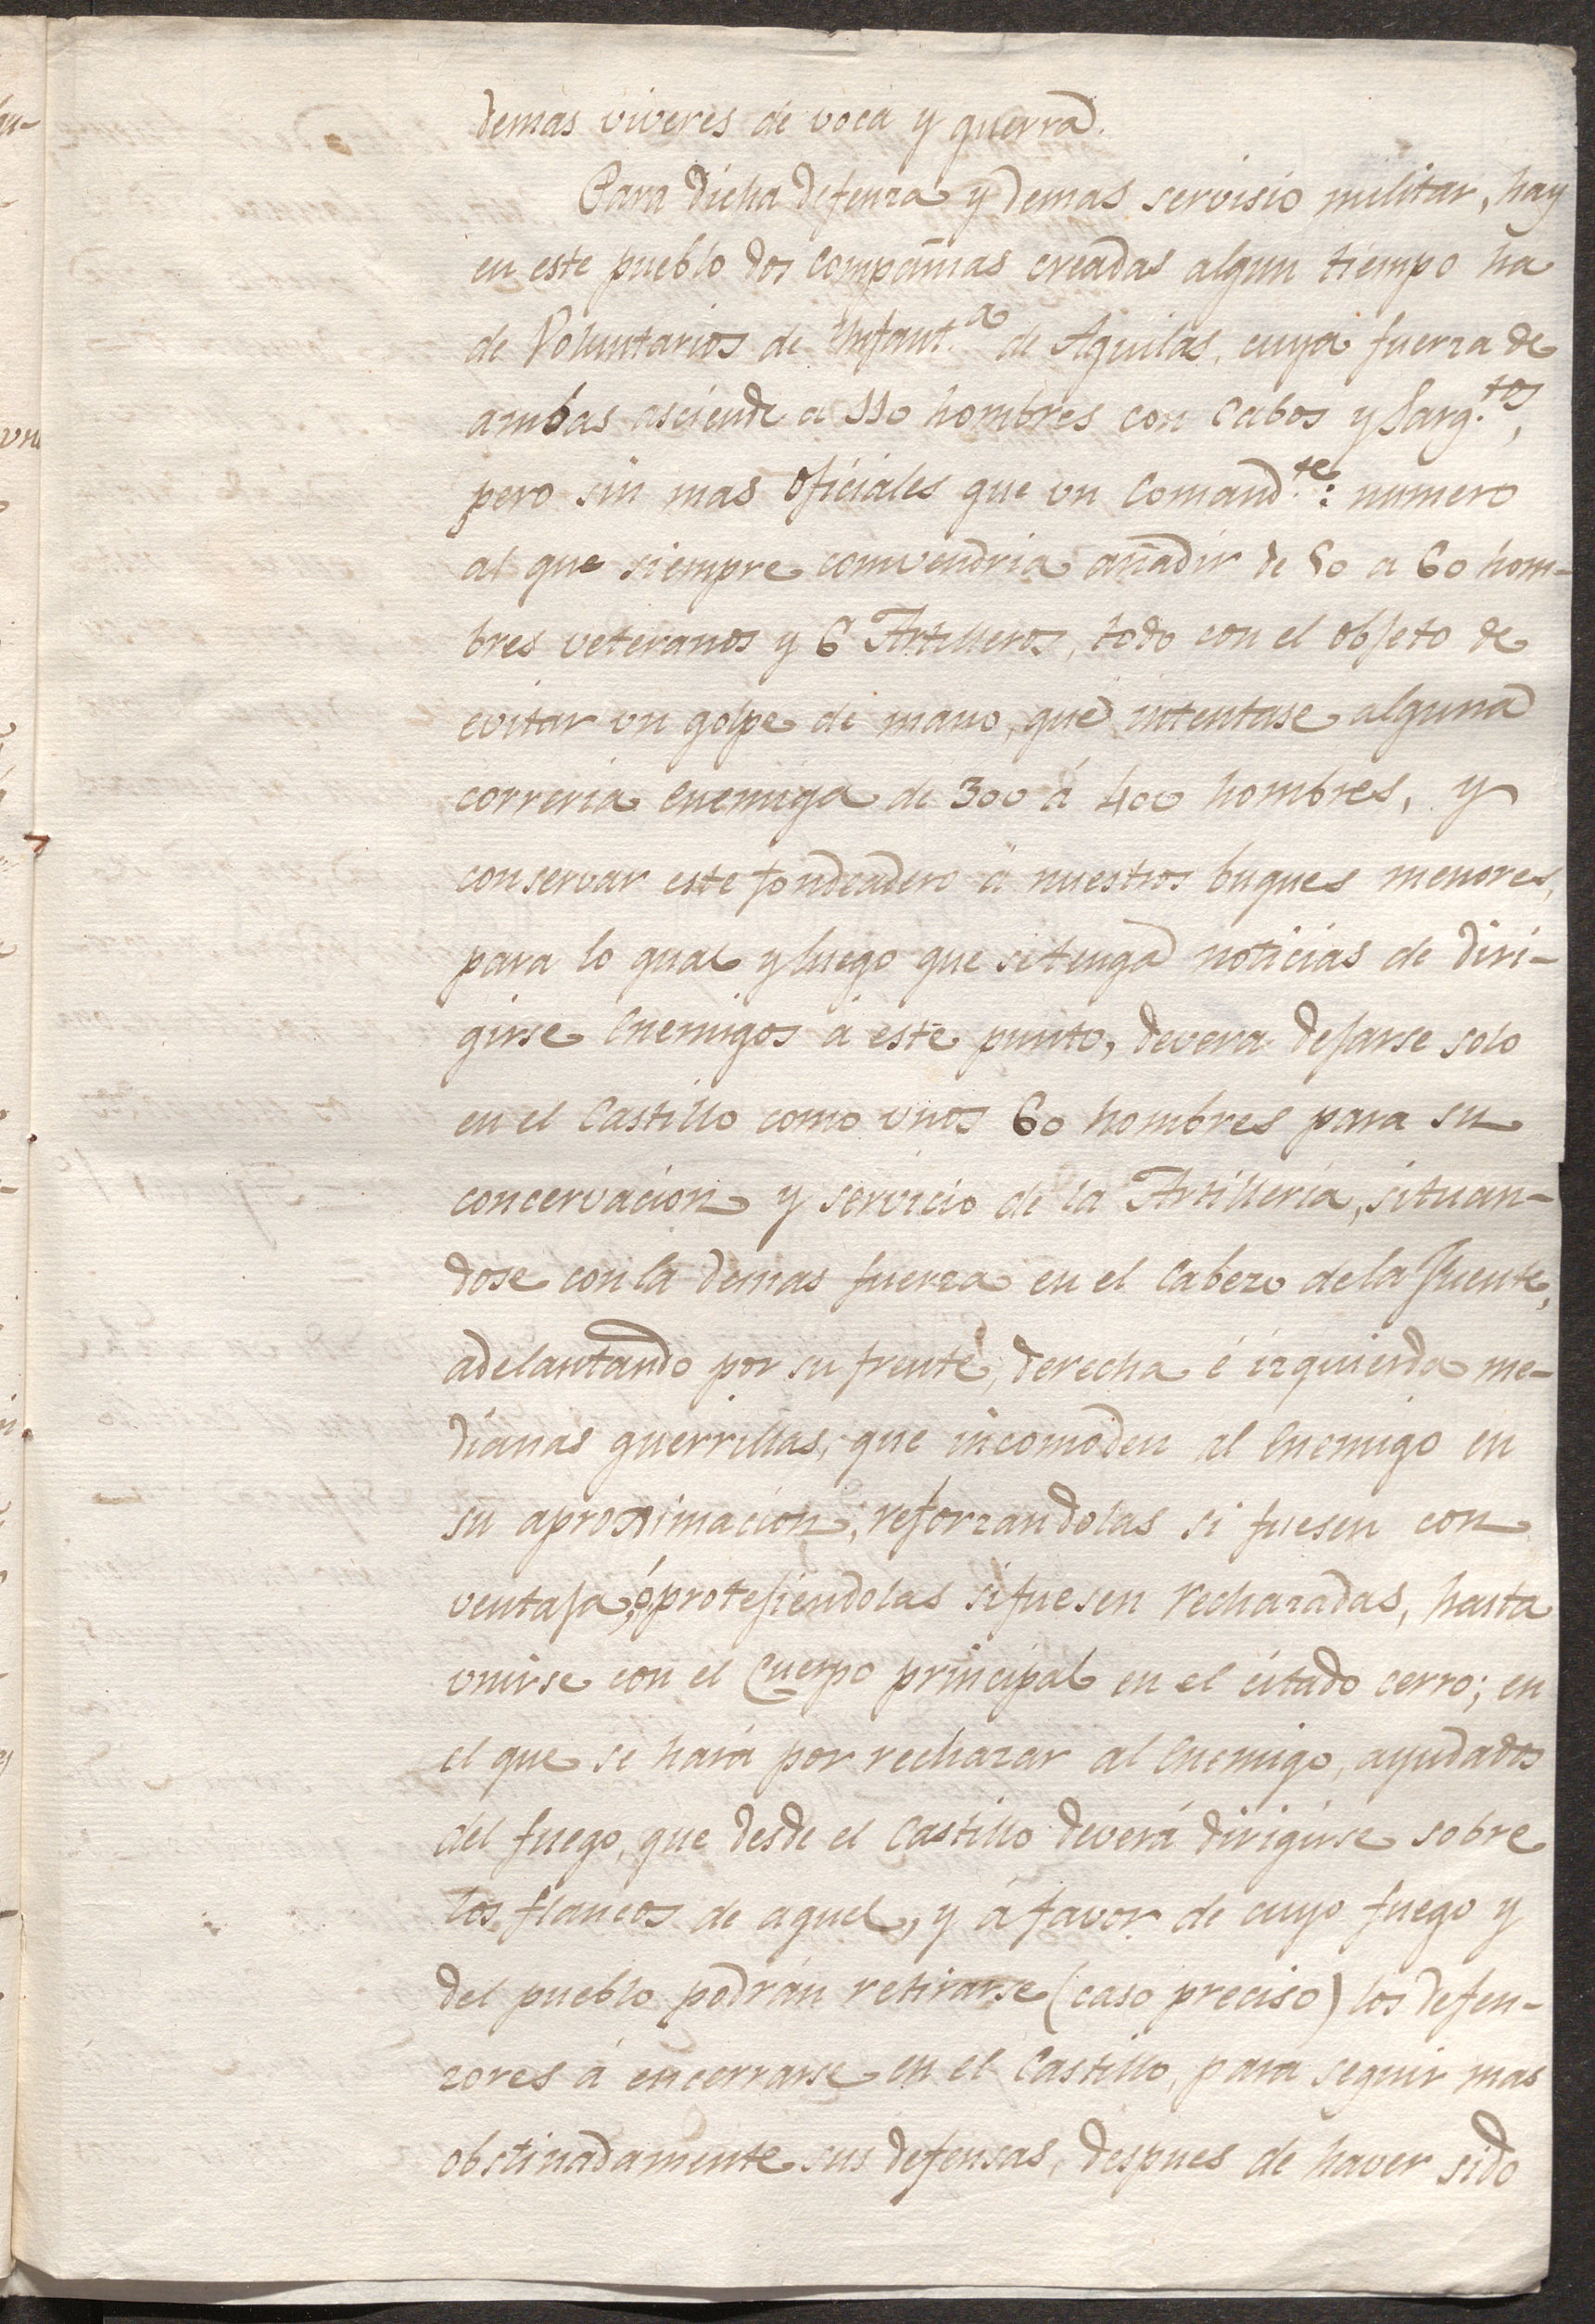 demas viveres de voca y guerra.
Para dicha defenza y demas servisio militar, hay
en este pueblo dos Compañias creadas algun tiempo ha
de Voluntarios de Infant.ª de Aguilas, cuya fuerza de
ambas asciende a 110 hombres con Cabos y Sarg.tos,
pero sin mas oficiales que un Comand.te: numero
al que siempre comvendria añadir de 50 a 60 hom-
bres veteranos y 6 Artilleros, todo con el objeto de
evitar un golpe de mano, que intentase alguna
correria enemiga de 300 á 400 hombres, y
conservar este fondeadero á nuestros buques menores,
para lo qual y luego que se tenga noticias de diri-
girse Enemigos á este punto, devera dejarse solo
en el Castillo como unos 60 hombres para su
concervacion y servicio de la Artilleria, situan-
dose con la demas fuerza en el Cabezo de la Fuente,
adelantando por su frente, derecha é izquierda me-
dianas guerrillas, que incomoden al Enemigo en
su aproximacion; reforzandolas si fuesen con
ventaja, ó protejiendolas si fuesen rechazadas, hasta
unirse con el Cuerpo principal en el citado cerro; en
el que se hará por rechazar al Enemigo, ayudados
del fuego, que desde el Castillo deverá dirigirse sobre
los flancos de aquel, y á favor de cuyo fuego y
del pueblo podrán retirarse (caso preciso) los defen-
zores á encerrarse en el Castillo, para seguir mas
obstinadamente sus defensas, despues de haver sido